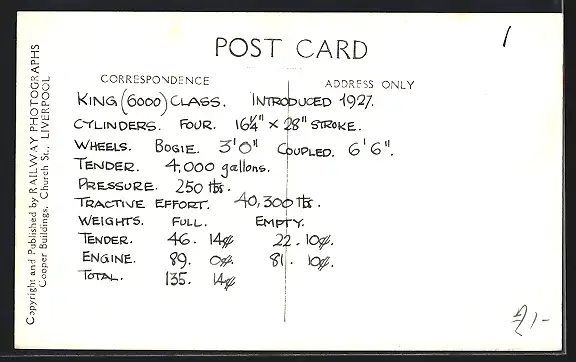 POST CARD
CORRESPONDENCE ADDRESS ONLY
KING (6000) CLASS. INTRODUCED 1927.
CYLINDERS. FOUR. 16¼" × 28" STROKE.
WHEELS. BOGIE. 3'0" COUPLED. 6'6".
TENDER. 4,000 gallons.
PRESSURE. 250 lbs.
TRACTIVE EFFORT. 40,300 lbs.
WEIGHTS. FULL. EMPTY.
TENDER. 46. 14 22. 10
ENGINE. 89. 0 81. 10
TOTAL. 135. 14
Copyright and Published by RAILWAY PHOTOGRAPHS
Cooper Buildings, Church St., LIVERPOOL
1
£1-